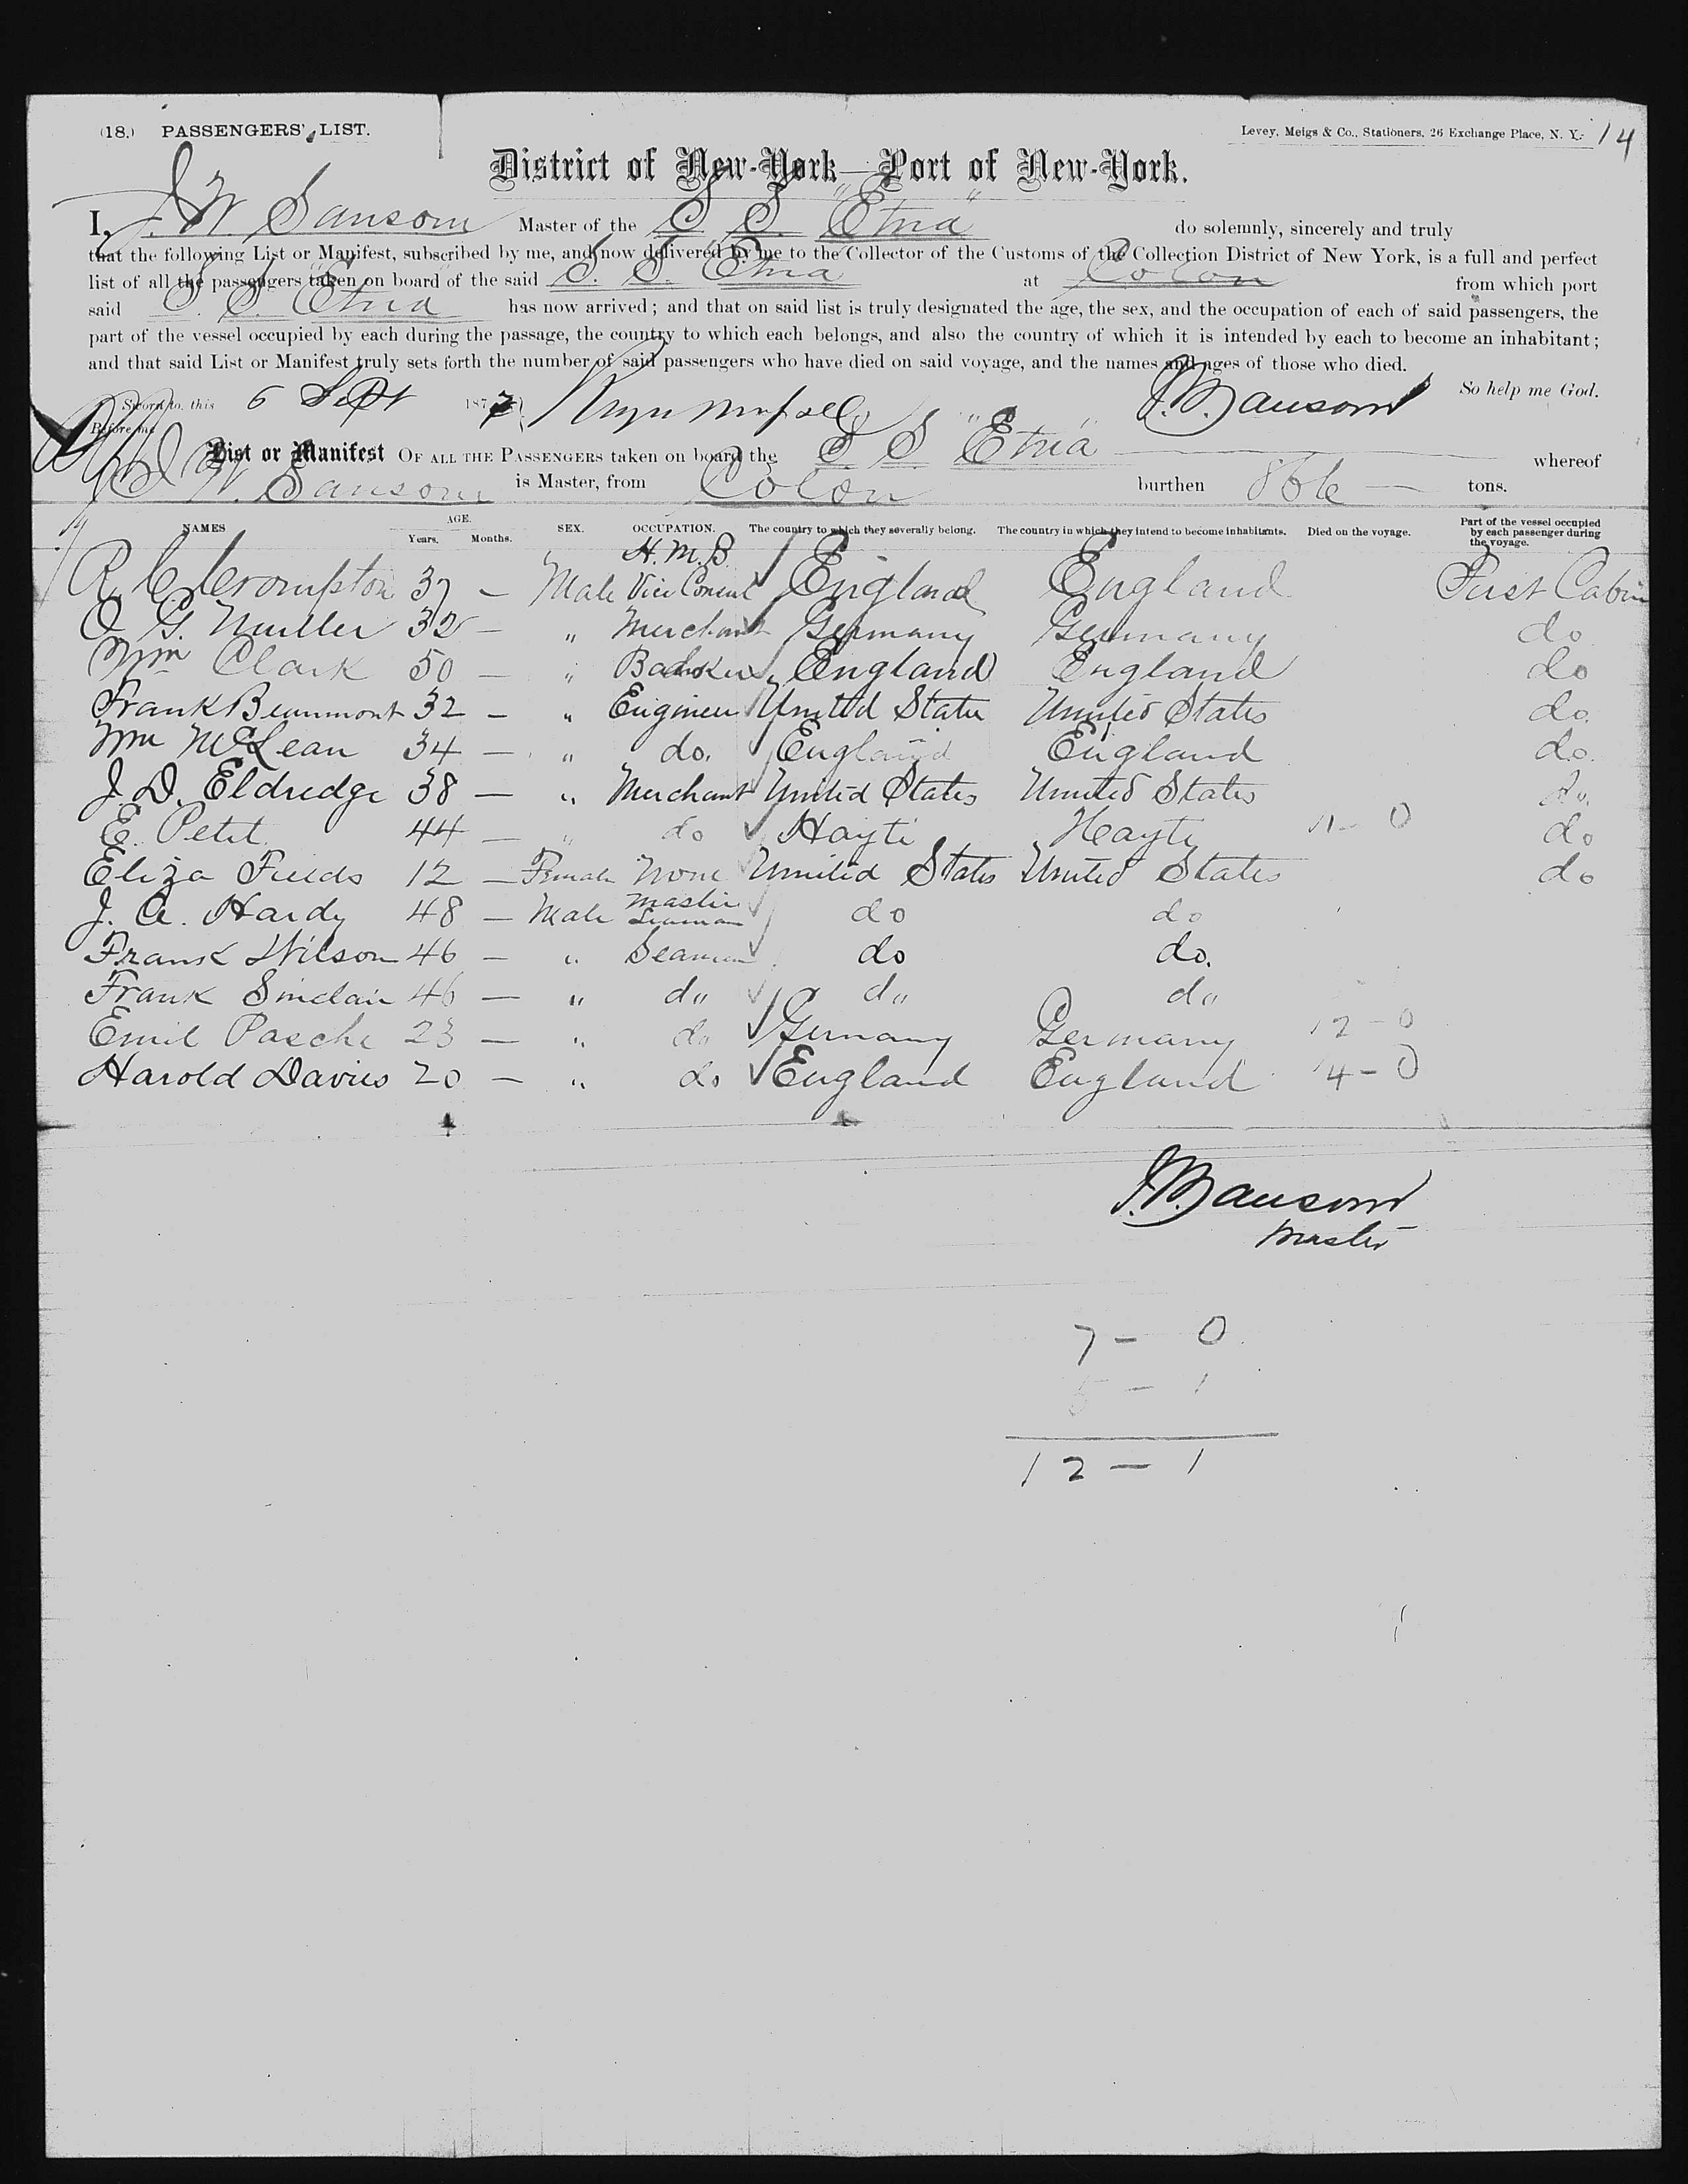 (18.) PASSENGERS' LIST.
Levey, Meigs & Co., Stationers, 26 Exchange Place, N. Y. 14
District of New-York—Port of New-York.
I, J. W. Sansom Master of the S. S. "Etna" do solemnly, sincerely and truly
that the following List or Manifest, subscribed by me, and now delivered by me to the Collector of the Customs of the Collection District of New York, is a full and perfect
list of all the passengers taken on board of the said S. S. Etna at Colon from which port
said S. S. "Etna" has now arrived; and that on said list is truly designated the age, the sex, and the occupation of each of said passengers, the
part of the vessel occupied by each during the passage, the country to which each belongs, and also the country of which it is intended by each to become an inhabitant;
and that said List or Manifest truly sets forth the number of said passengers who have died on said voyage, and the names and ages of those who died.
So help me God.
Sworn to, this 6 Sept 187 J. W. Sansom
Before me
List or Manifest OF ALL THE PASSENGERS taken on board the S S "Etna" whereof
J. W. Sansom is Master, from Colon burthen tons.
NAMES AGE. Years. Months. SEX. OCCUPATION. The country to which they severally belong. The country in which they intend to become inhabitants. Died on the voyage. Part of the vessel occupied by each passenger during the voyage.
H. M. B.
R. C. Crompton 37 — Male Vice Consul England England First Cabin
O. G. Muller 32 — " Merchant Germany Germany do
Wm Clark 50 — " Banker England England do
Frank Beaumont 32 — " Engineer United States United States do.
Wm McLean 34 — " do. England England do.
J. D. Eldredge 38 — " Merchant United States United States do.
E. Petit 44 — " do Hayti Hayti 11 - 0 do
Eliza Fields 12 — Female None United States United States do
J. A. Hardy 48 — Male Master Seaman do do
Frank Wilson 46 — " Seaman do do.
Frank Sinclair 46 — " do do do
Emil Pasche 23 — " do Germany Germany 12 - 0
Harold Davies 20 — " do England England 14 - 0
J. W. Sansom
Master
7 - 0
5 - 1
12 - 1